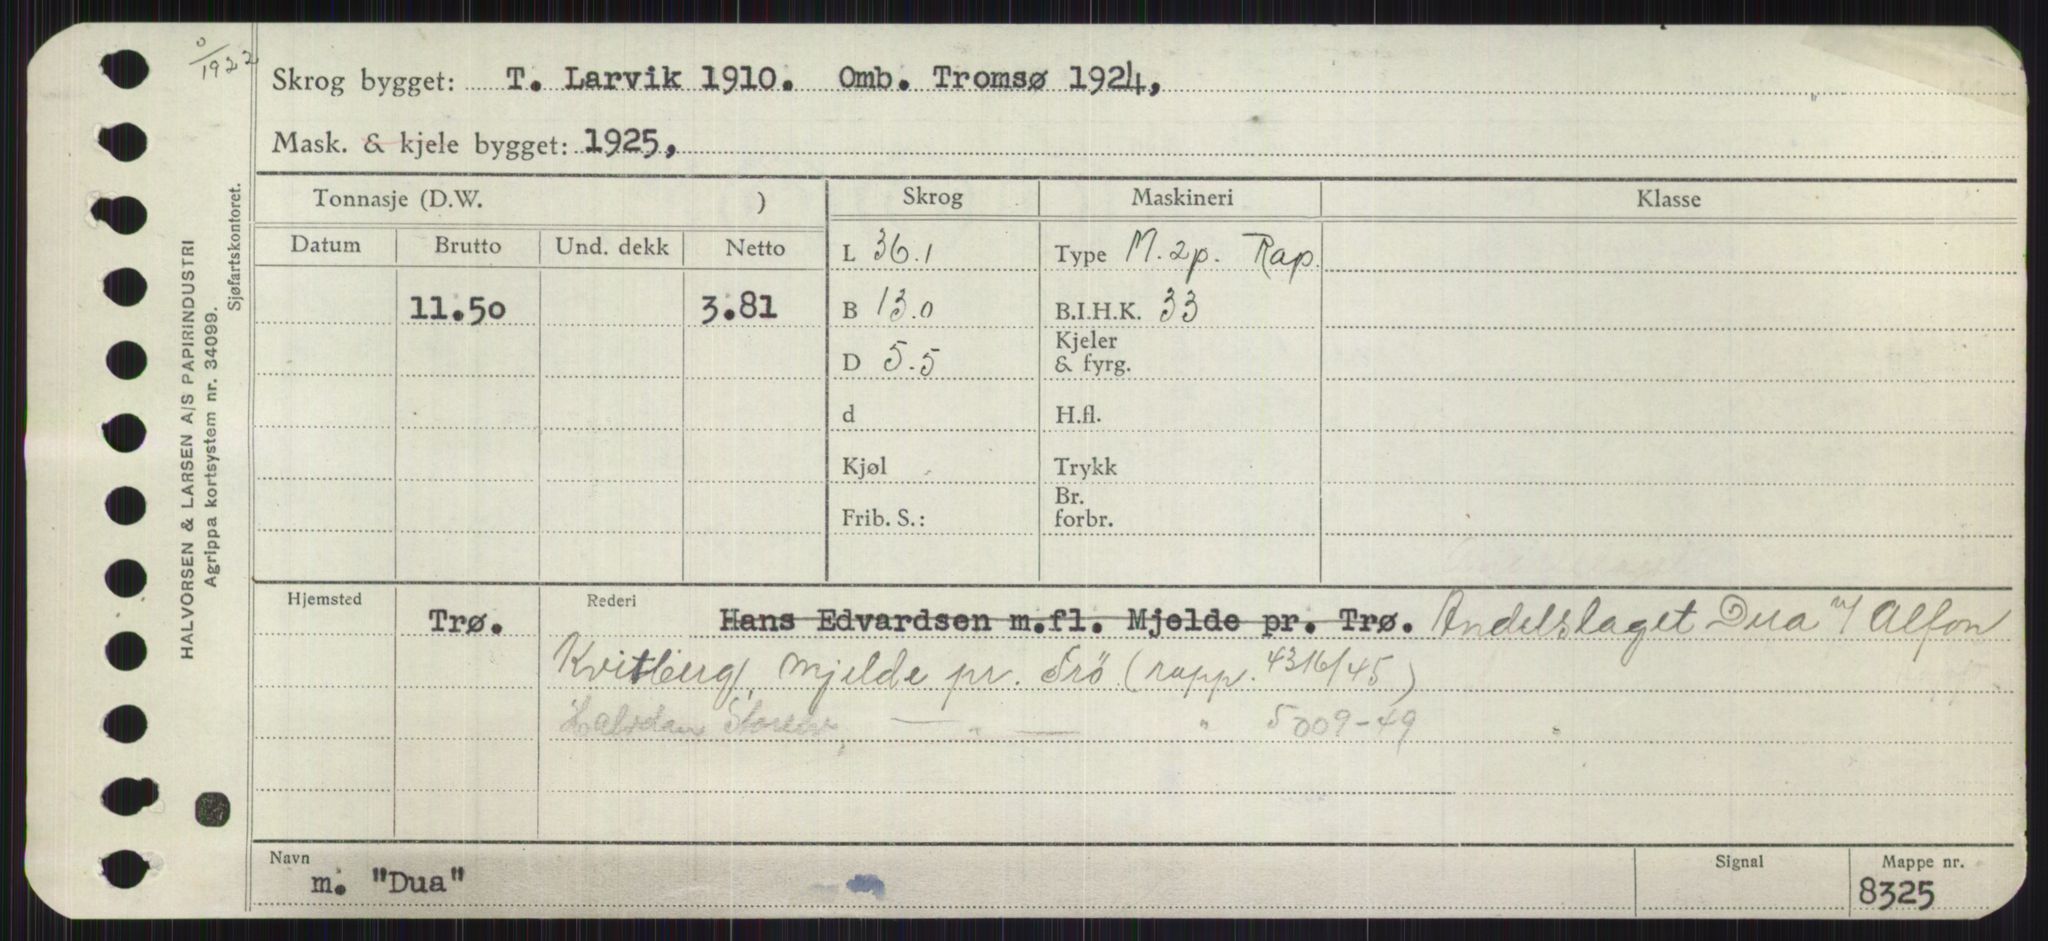 0/1922
Skrog bygget: T. Larvik 1910. Omb. Tromsø 1924,
Mask. & kjele bygget: 1925,
Tonnasje (D.W. ) Skrog Maskineri Klasse
Datum Brutto Und. dekk Netto
L 36.1 Type M. 2p. Rap.
11.50 3.81 B 13.0 B.I.H.K. 33
D 5.5 Kjeler & fyrg.
d H.fl.
Kjøl Trykk
Frib. S.: Br. forbr.
Hjemsted Trø. Rederi Hans Edvardsen m.fl. Mjelde pr. Trø. Andelslaget Dua v/ Alfon
Kvitberg, Mjelde pr. Trö (rapp. 4316/45)
Halvdan — " — " 5009-49
Navn m. "Dua" Signal Mappe nr. 8325
HALVORSEN & LARSEN A/S PAPIRINDUSTRI
Agrippa kortsystem nr. 34099.
Sjøfartskontoret.